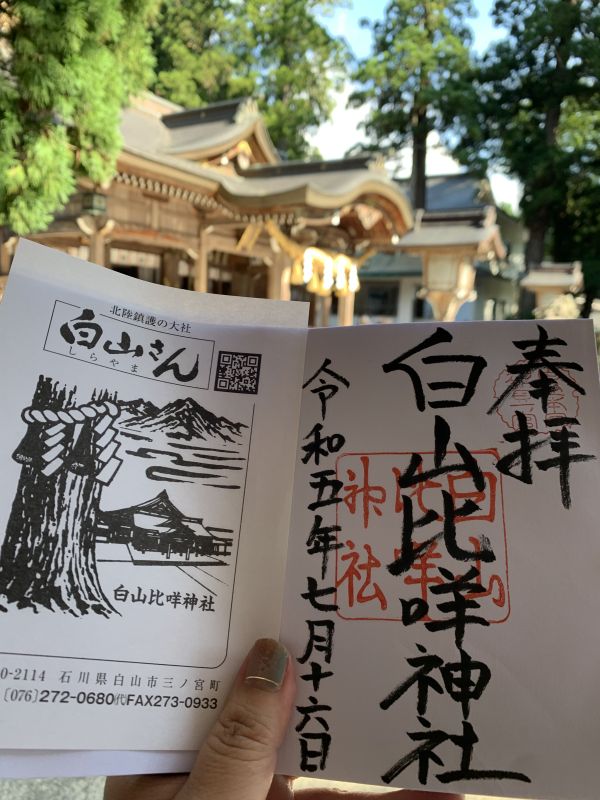 北陸鎮護の大社
白山さん
しらやま
白山比咩神社
0-2114 石川県白山市三ノ宮町
〔076〕272-0680㈹FAX273-0933
奉拝
白山比咩神社
白山
比咩
神社
令和五年七月十六日